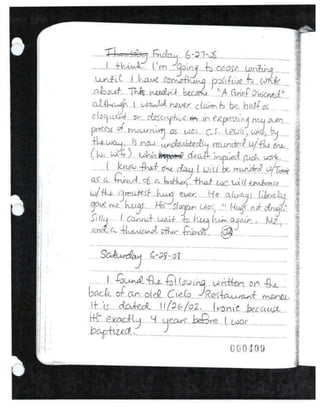 Thursday Friday 6-27-08
I think I'm going to cease writing
until I have something positive to write
about. This needn't become "A Grief Observed"
although I would never claim to be half as
eloquent or descriptive in expressing my own
process of mourning as was C.S. Lewis, who, by
the way, is now undoubtedly reunited w/the one
(his wife) whose death inspired such work.
I know that one day I will be reunited w/
as a friend & a brother, that we will embrace
w/the greatest hug ever. He always liberally
gave me hugs. His slogan was, "Hugs not drugs".
Silly. I cannot wait to hug him again. Me,
and a thousand other friends.
Saturday 6-28-08
I found the following written on the
back of an old Cielo Restaurant menu.
It is dated 11/26/02. Ironic because
it's exactly 4 years before I was
baptized.
000409